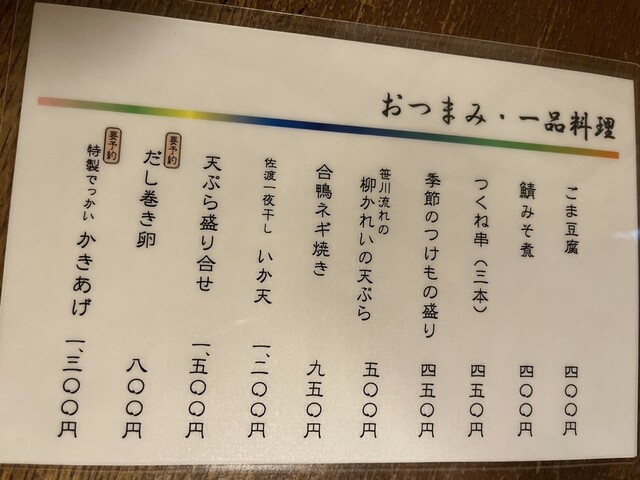 おつまみ・一品料理
ごま豆腐 四〇〇円
鯖みそ煮 四〇〇円
つくね串(三本) 四五〇円
季節のつけもの盛り 四五〇円
笹川流れの
柳かれいの天ぷら 五〇〇円
合鴨ネギ焼き 九五〇円
佐渡一夜干し いか天 一、二〇〇円
天ぷら盛り合せ 一、五〇〇円
要予約
だし巻き卵 八〇〇円
要予約
特製でっかい かきあげ 一、三〇〇円